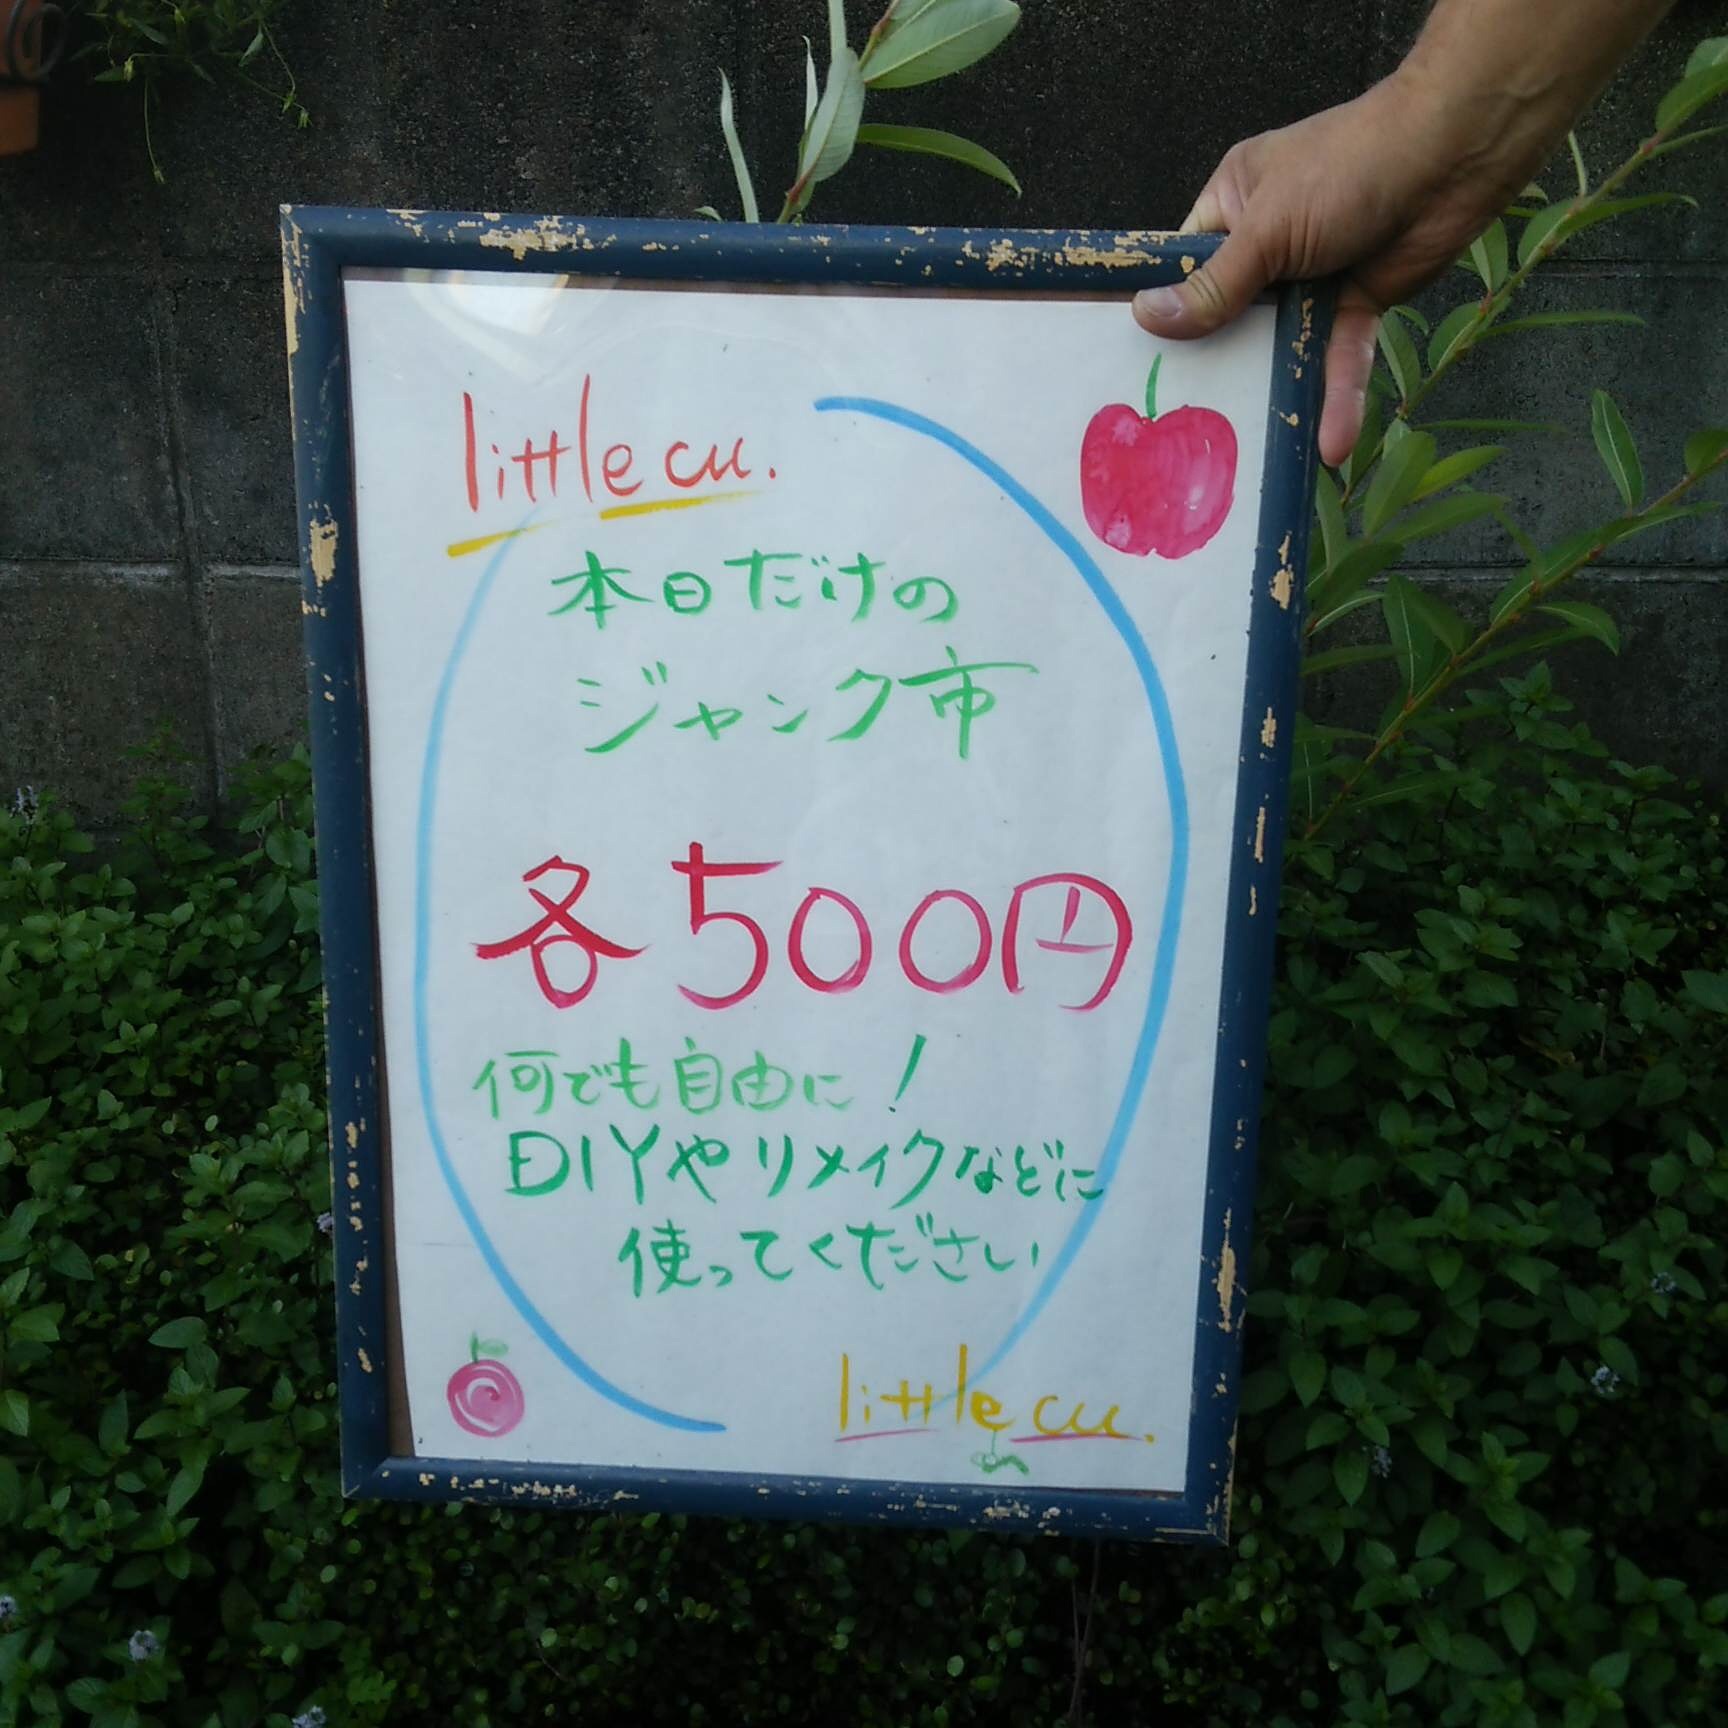 little cu.
本日だけの
ジャンク市
各500円
何でも自由に!
DIYやリメイクなどに
使ってください
little cu.